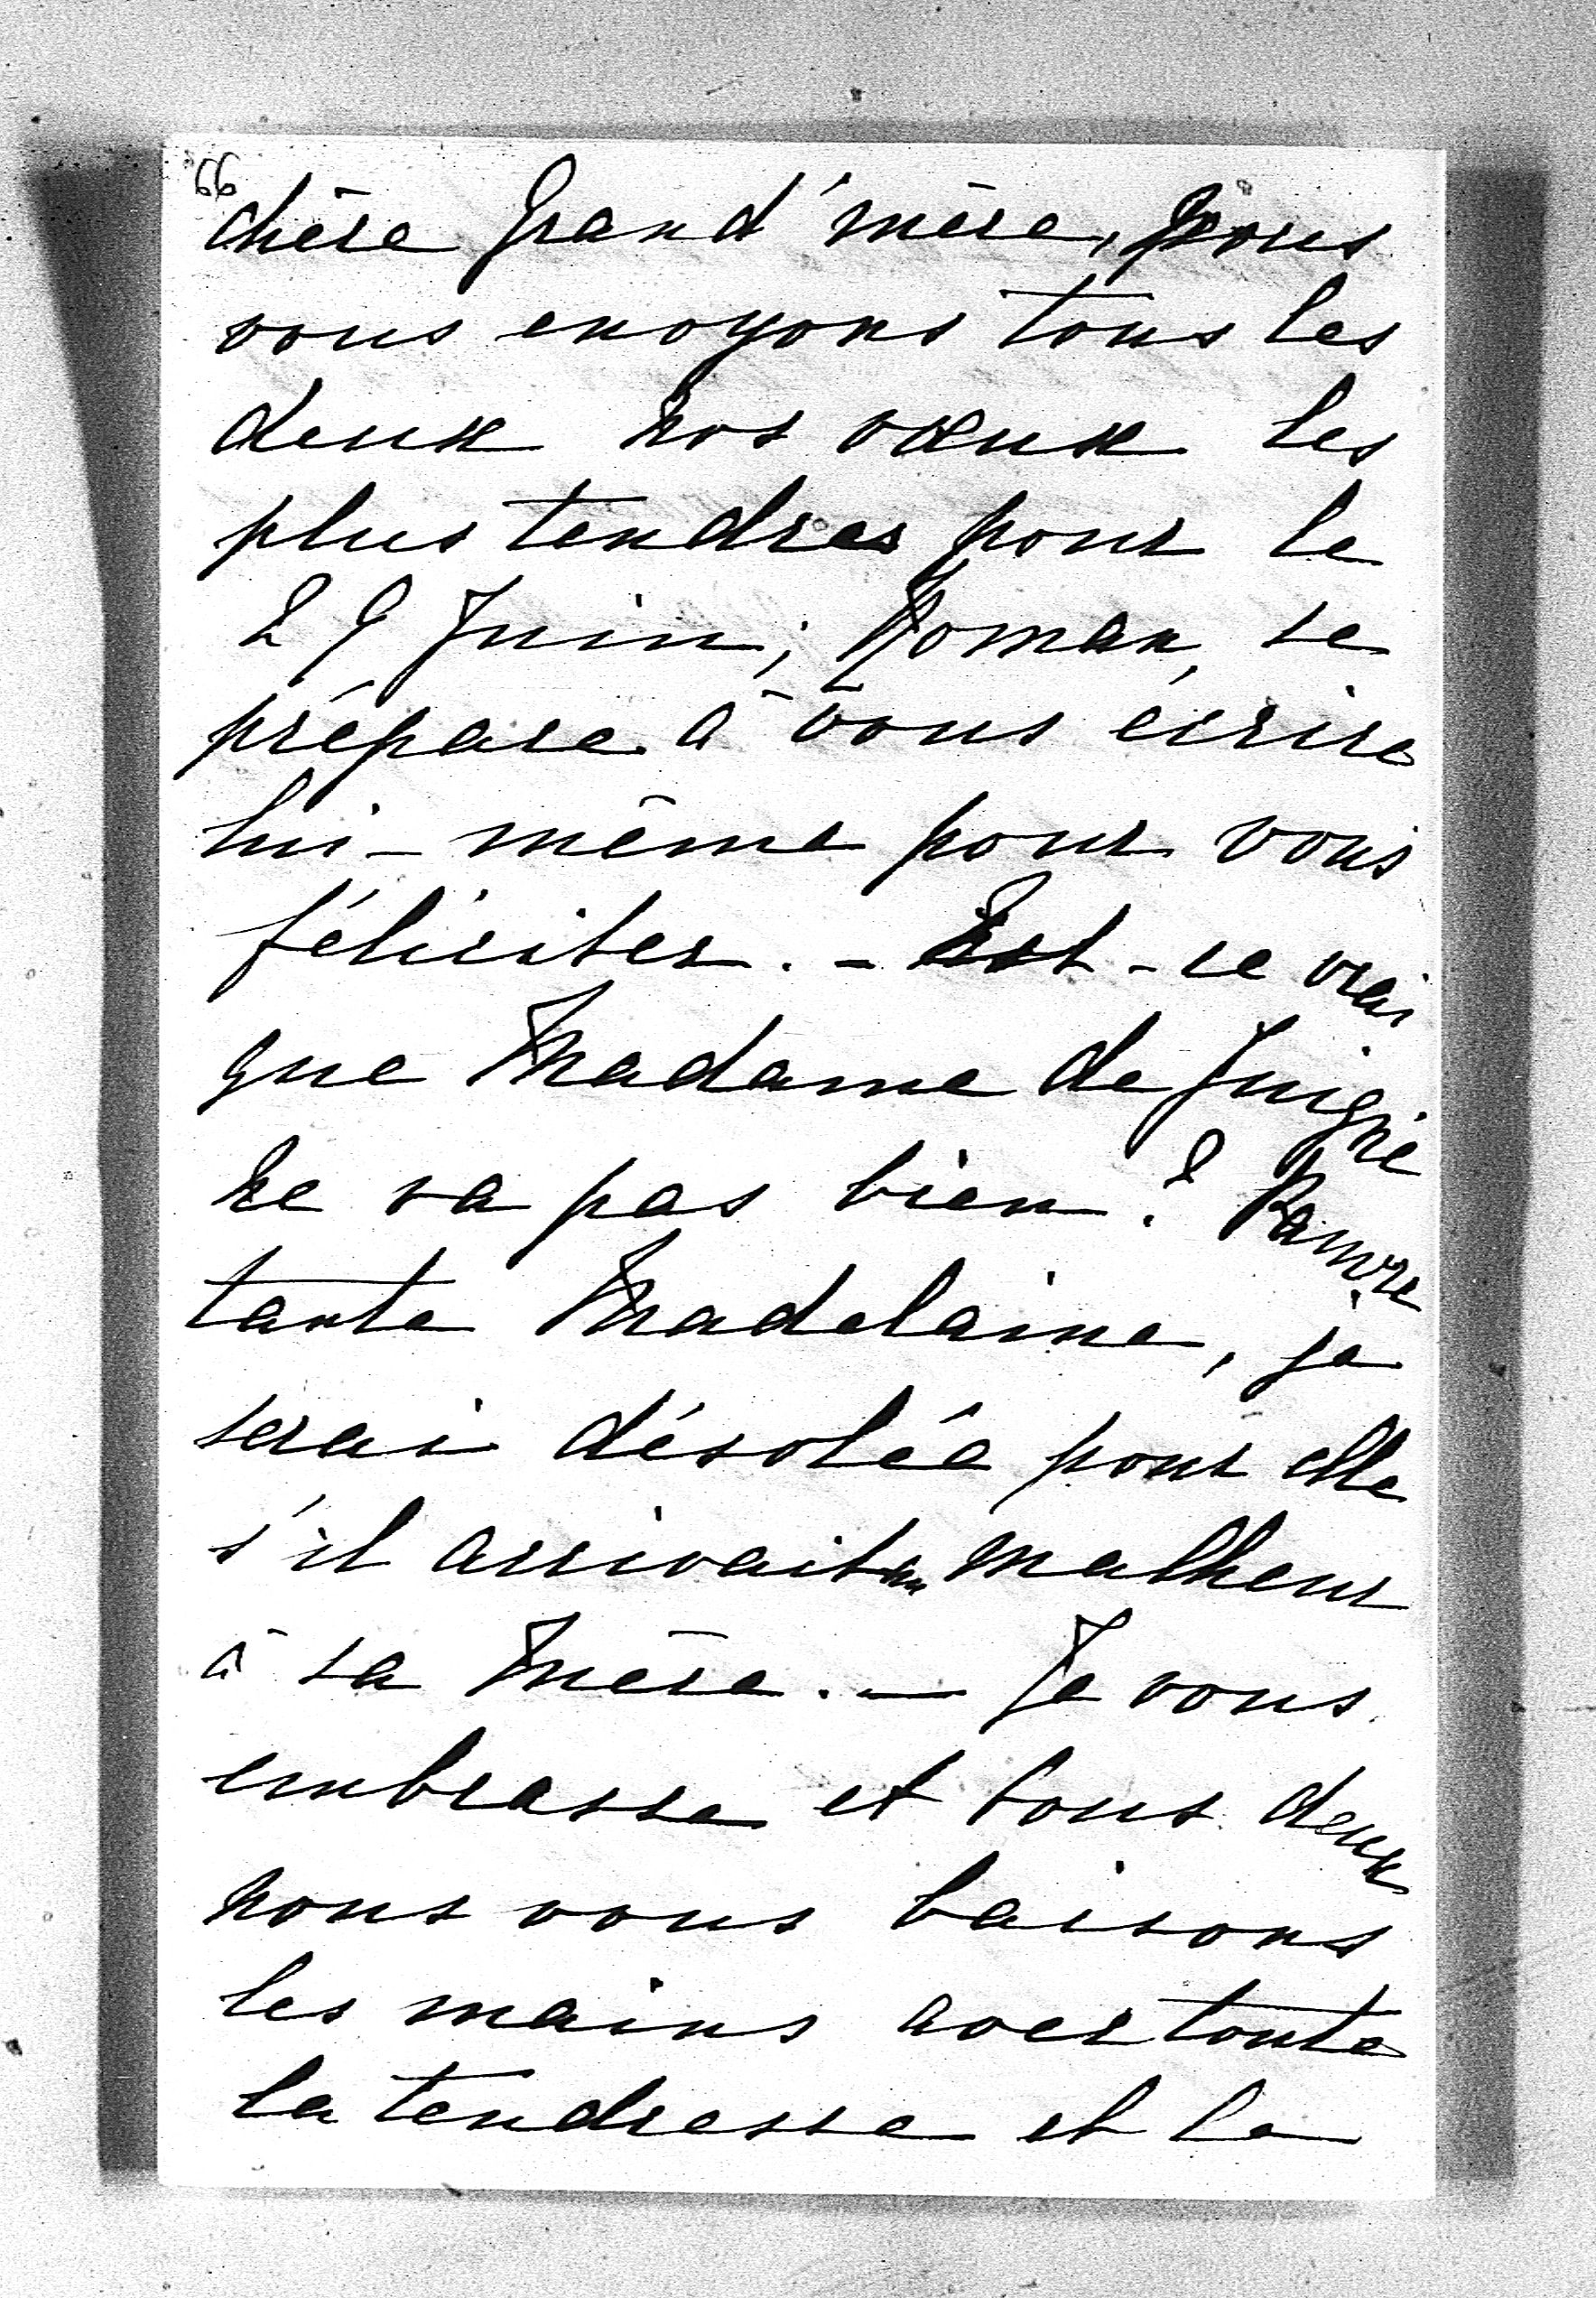 66
chère Grand'mère, nous
vous envoyons tous les
deux nos vœux les
plus tendres pour le
29 Juin; Roman, se
prépare à vous écrire
lui-même pour vous
féliciter. - Est-ce vrai
que Madame de Juigné
ne va pas bien? Pauvre
tante Madelaine, je
serai désolée pour elle
s'il arrivait un malheur
à sa Mère. — Je vous
embrasse et tous deux
nous vous baisons
les mains avec toute
la tendresse et le